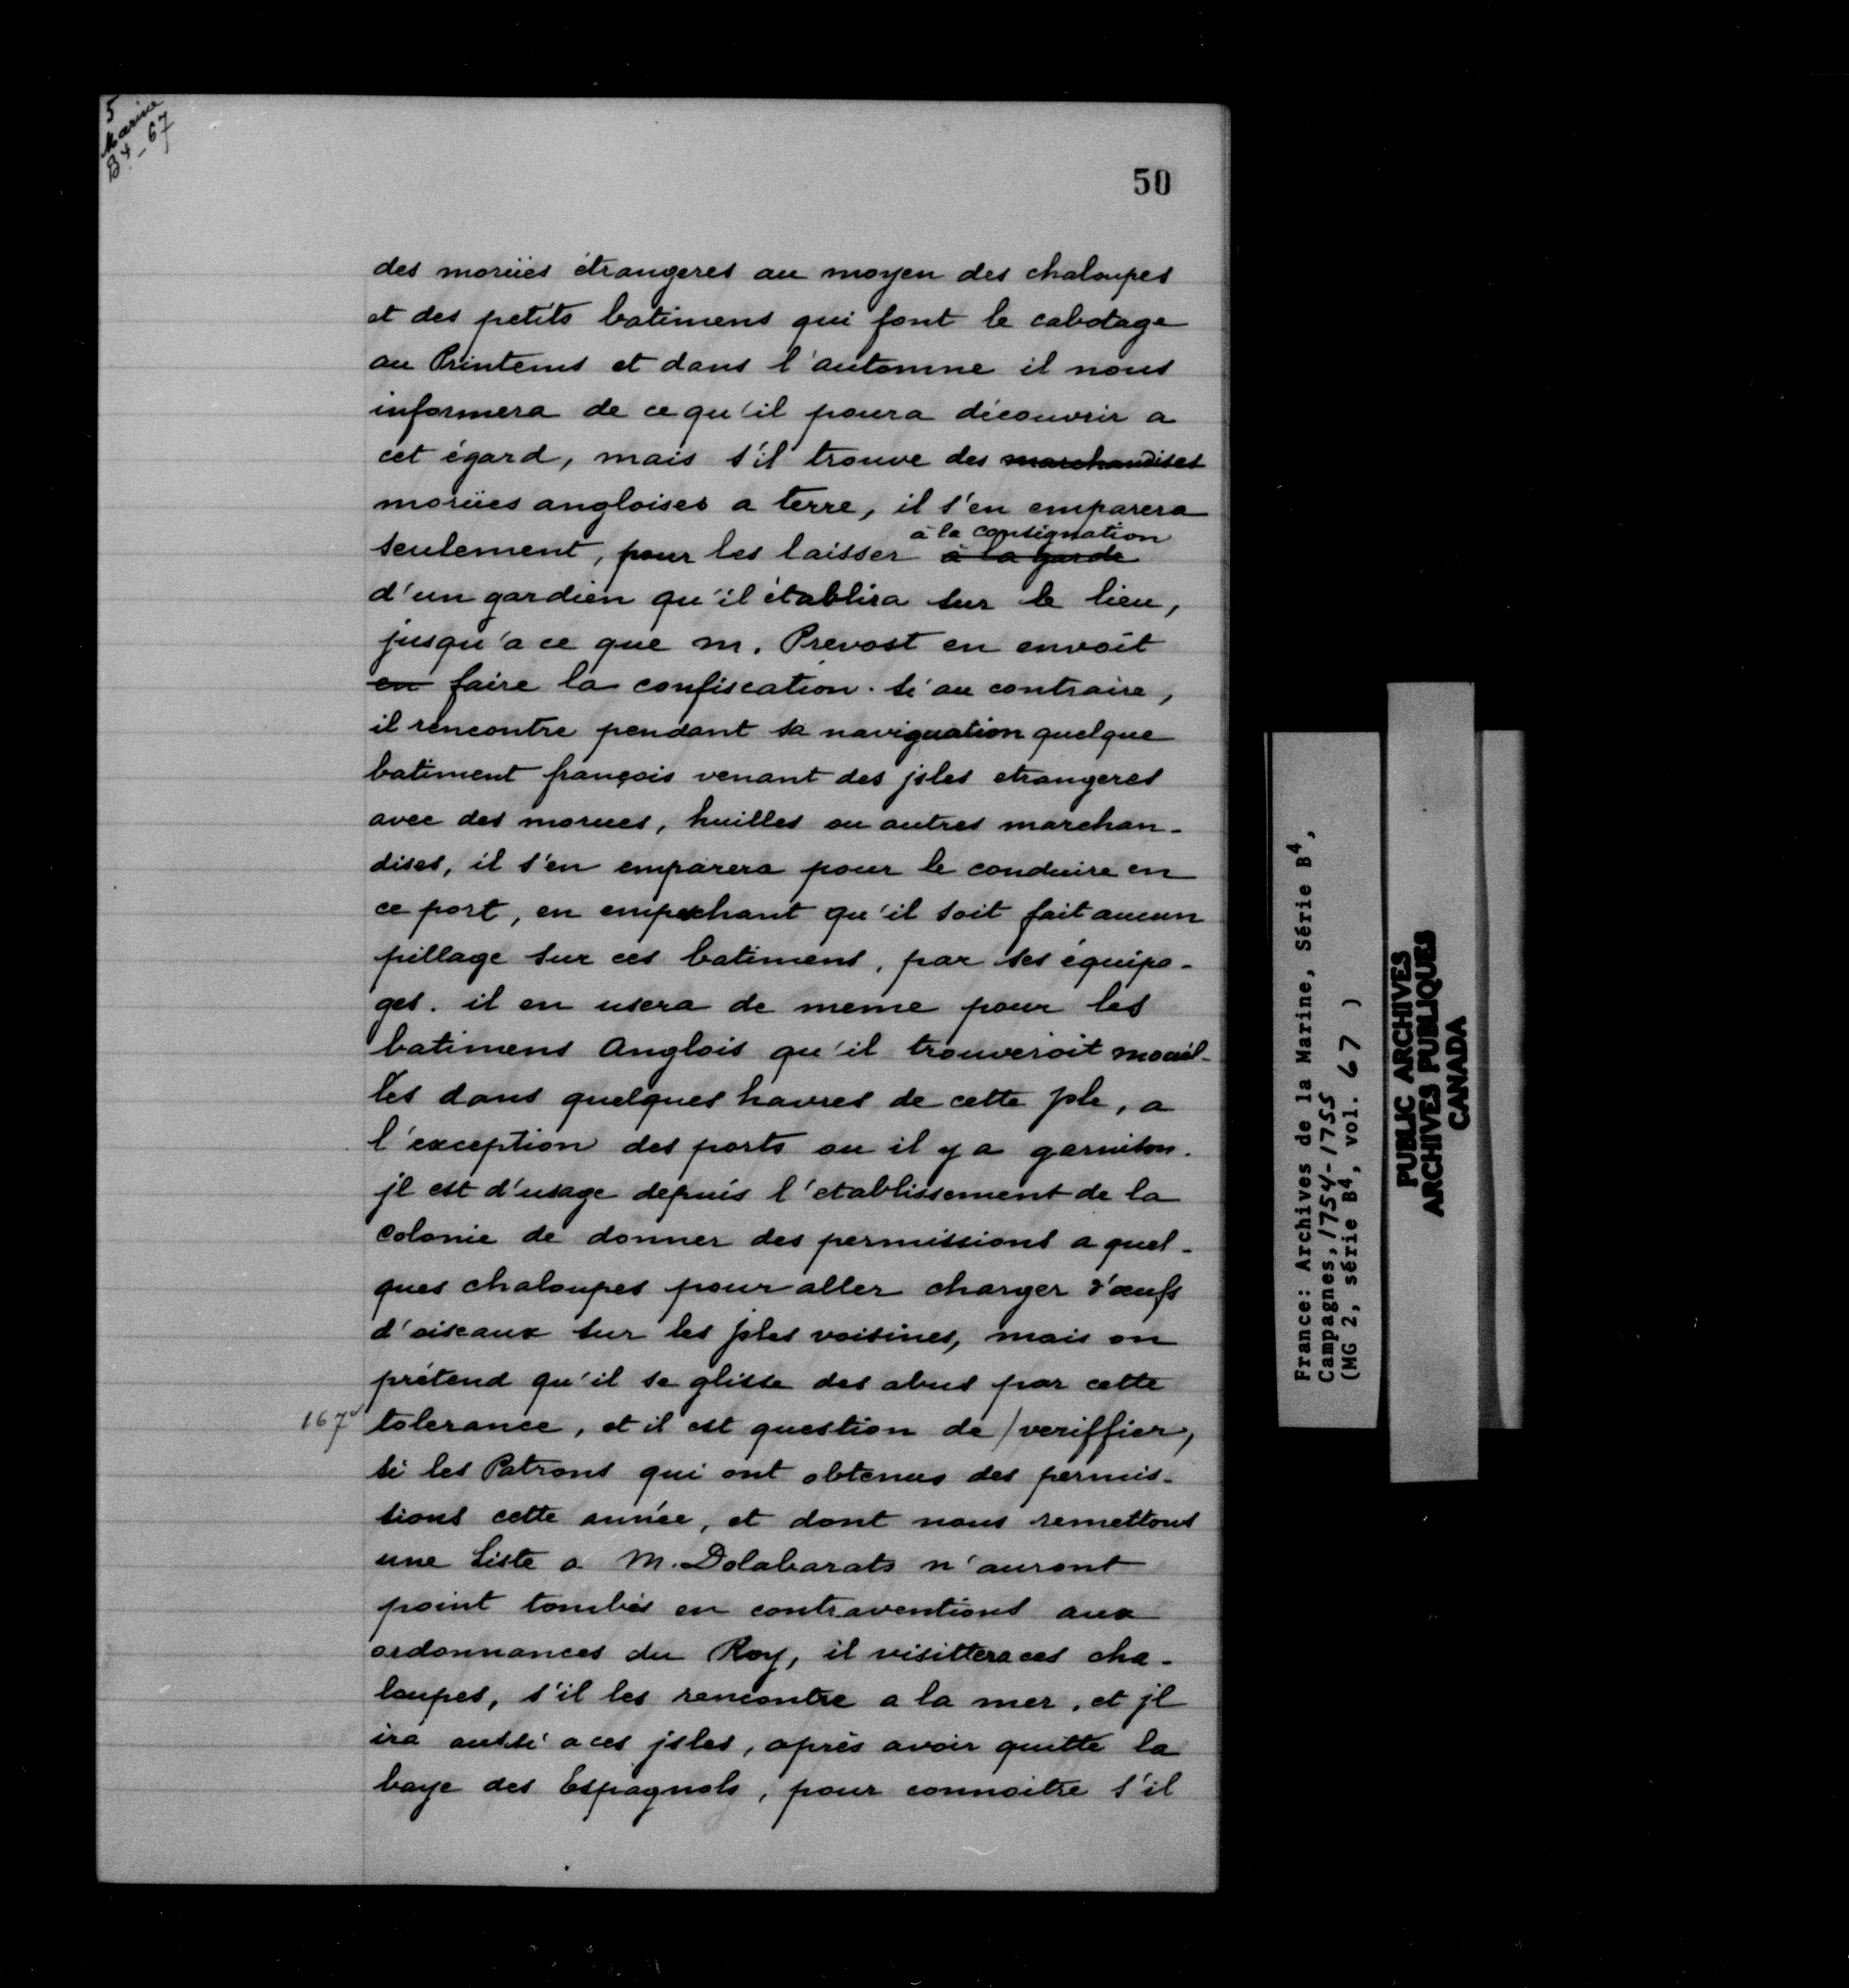 5
Marine
B4-67
50
des moruës étrangeres au moyen des chaloupes
et des petits batimens qui font le cabotage
au Printems et dans l'automne il nous
informera de ce qu'il poura découvrir a
cet égard, mais s'il trouve des marchandises
moruës angloises a terre, il s'en emparera
à la consignation
seulement, pour les laisser à la garde
d'un gardien qu'il établira sur le lieu,
jusqu'a ce que m. Prevost en envoît
en faire la confiscation. si au contraire,
il rencontre pendant sa naviguation quelque
batiment françois venant des jsles etrangeres
avec des morues, huilles ou autres marchan-
dises, il s'en emparera pour le conduire en
ce port, en empechant qu'il soit fait aucun
pillage sur ces batimens, par ses équipa-
ges. il en usera de meme pour les
batimens Anglois qu'il trouveroit mouil-
lés dans quelques havres de cette jsle, a
l'exception des ports ou il y a garnison.
jl est d'usage depuis l'etablissement de la
Colonie de donner des permissions a quel-
ques chaloupes pour aller charger d'œufs
d'oiseaux sur les jsles voisines, mais on
prétend qu'il se glisse des abus par cette
167v tolerance, et il est question de / veriffier,
si les Patrons qui ont obtenus des permis-
sions cette année, et dont nous remettons
une Liste a M. Dolabarats n'auront
point tombés en contraventions aux
ordonnances du Roy, il visittera ces cha-
loupes, s'il les rencontre a la mer, et jl
ira aussi a ces jsles, après avoir quitté la
baye des Espagnols, pour connoitre s'il
France: Archives de la Marine, Série B4,
Campagnes, 1754-1755
(MG 2, série B4, vol. 67 )
PUBLIC ARCHIVES
ARCHIVES PUBLIQUES
CANADA